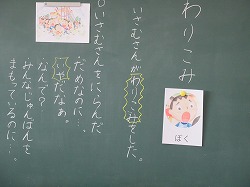 わりこみ
いさむさんがわりこみをした。
○いさむさんをにらんだ
だめなのに…。
いやだなぁ。
なんで？
みんなじゅんばんを
まもっているのに…！
ぼく